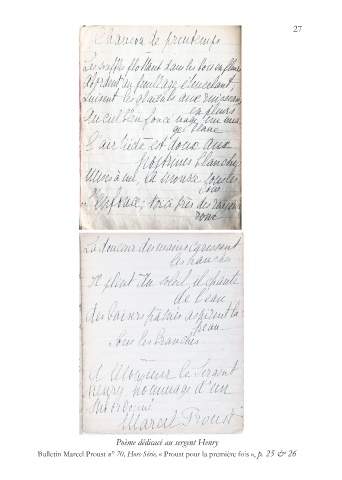 27
Chanson de printemps
Les souffles flottant dans les bois en fleurs
du feuillage étincelant,
Luisent les
en fleurs
Au ciel bleu foncé nage un nua
ge blanc
L'air tiède est doux aux
poitrines blanches
la mousse
sous
s'enfonce, près des rayons
La douceur des mains caressent
les hanches
Il pleut du soleil, il chante
de l'eau
des baisers pâmés aspirent la
peau
Sous les branches
A Monsieur le Sergent
Henry, hommage d'un
subordonné
Marcel Proust
Poème dédicacé au sergent Henry
Bulletin Marcel Proust n° 70, Hors-Série, « Proust pour la première fois », p. 25 & 26